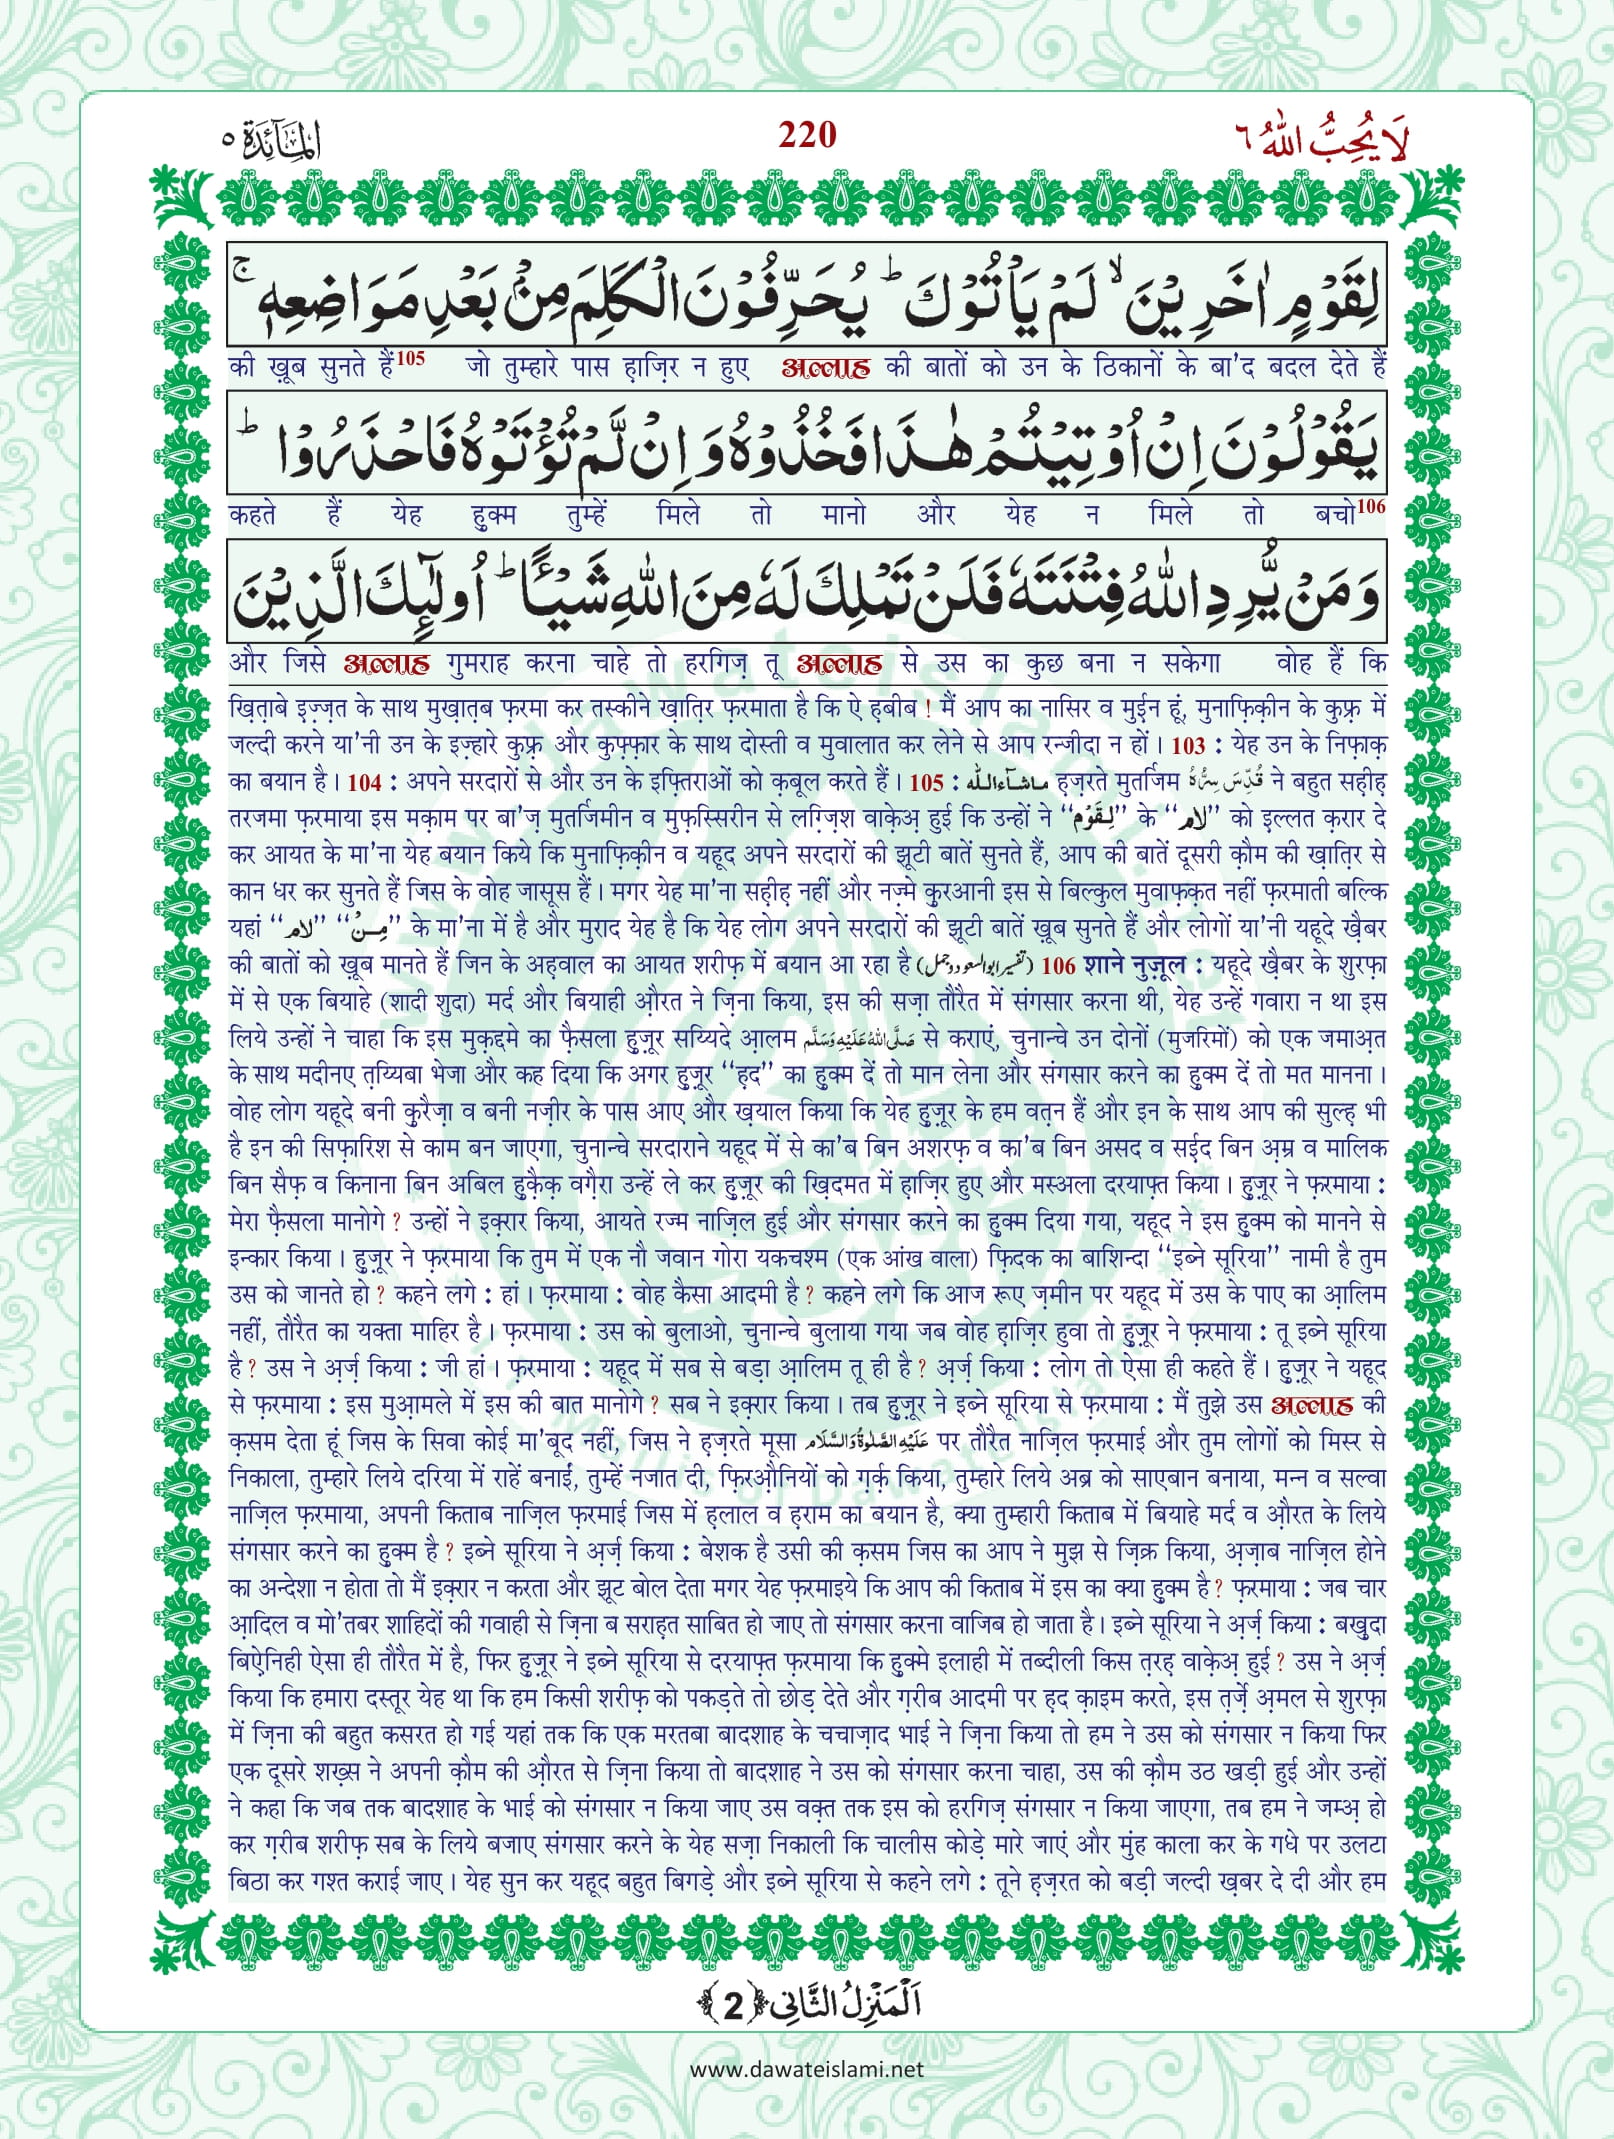 المآئدة ٥
220
لَا يُحِبُّ اللّٰهُ ٦
لِقَوْمٍ اٰخَرِيْنَۙ لَمْ يَاْتُوْكَؕ يُحَرِّفُوْنَ الْكَلِمَ مِنْۢ بَعْدِ مَوَاضِعِهٖۚ
की ख़ूब सुनते हैं105 जो तुम्हारे पास ह़ाज़िर न हुए अल्लाह की बातों को उन के ठिकानों के बा'द बदल देते हैं
يَقُوْلُوْنَ اِنْ اُوْتِيْتُمْ هٰذَا فَخُذُوْهُ وَ اِنْ لَّمْ تُؤْتَوْهُ فَاحْذَرُوْاؕ
कहते हैं येह हुक्म तुम्हें मिले तो मानो और येह न मिले तो बचो106
وَ مَنْ يُّرِدِ اللّٰهُ فِتْنَتَهٗ فَلَنْ تَمْلِكَ لَهٗ مِنَ اللّٰهِ شَيْـًٔاؕ اُولٰٓىٕكَ الَّذِيْنَ
और जिसे अल्लाह गुमराह करना चाहे तो हरगिज़ तू अल्लाह से उस का कुछ बना न सकेगा वोह हैं कि
ख़ित़ाबे इज़्ज़त के साथ मुख़ात़ब फ़रमा कर तस्कीने ख़ात़िर फ़रमाता है कि ऐ ह़बीब ! मैं आप का नासिर व मुईन हूं, मुनाफ़िक़ीन के कुफ़्र में
जल्दी करने या'नी उन के इज़्हारे कुफ़्र और कुफ़्फ़ार के साथ दोस्ती व मुवालात कर लेने से आप रन्जीदा न हों। 103 : येह उन के निफ़ाक़
का बयान है। 104 : अपने सरदारों से और उन के इफ़्तिराओं को क़बूल करते हैं। 105 : ماشآءاللّٰه हज़रते मुतर्जिम قُدِّسَ سِرُّهُ ने बहुत सह़ीह़
तरजमा फ़रमाया इस मक़ाम पर बा'ज़ मुतर्जिमीन व मुफ़स्सिरीन से लग़्ज़िश वाक़ेअ़ हुई कि उन्हों ने “لِقَوْمٍ” के “لام” को इल्लत क़रार दे
कर आयत के मा'ना येह बयान किये कि मुनाफ़िक़ीन व यहूद अपने सरदारों की झूटी बातें सुनते हैं, आप की बातें दूसरी क़ौम की ख़ात़िर से
कान धर कर सुनते हैं जिस के वोह जासूस हैं। मगर येह मा'ना सह़ीह़ नहीं और नज़्मे क़ुरआनी इस से बिल्कुल मुवाफ़क़त नहीं फ़रमाती बल्कि
यहां “لام” “مِنْ” के मा'ना में है और मुराद येह है कि येह लोग अपने सरदारों की झूटी बातें ख़ूब सुनते हैं और लोगों या'नी यहूदे ख़ैबर
की बातों को ख़ूब मानते हैं जिन के अह़वाल का आयत शरीफ़ में बयान आ रहा है (تفسیر ابوالسعود وجمل) 106 शाने नुज़ूल : यहूदे ख़ैबर के शुरफ़ा
में से एक बियाहे (शादी शुदा) मर्द और बियाही औ़रत ने ज़िना किया, इस की सज़ा तौरैत में संगसार करना थी, येह उन्हें गवारा न था इस
लिये उन्हों ने चाहा कि इस मुक़द्दमे का फ़ैसला हुज़ूर सय्यिदे आ़लम صَلَّى اللّٰهُ عَلَيْهِ وَسَلَّم से कराएं, चुनान्चे उन दोनों (मुजरिमों) को एक जमाअ़त
के साथ मदीनए त़य्यिबा भेजा और कह दिया कि अगर हुज़ूर “ह़द” का हुक्म दें तो मान लेना और संगसार करने का हुक्म दें तो मत मानना।
वोह लोग यहूदे बनी क़ुरैज़ा व बनी नज़ीर के पास आए और ख़याल किया कि येह हुज़ूर के हम वत़न हैं और इन के साथ आप की सुल्ह़ भी
है इन की सिफ़ारिश से काम बन जाएगा, चुनान्चे सरदाराने यहूद में से का'ब बिन अशरफ़ व का'ब बिन असद व सईद बिन अ़म्र व मालिक
बिन सैफ़ व किनाना बिन अबिल हुक़ैक़ वग़ैरा उन्हें ले कर हुज़ूर की ख़िदमत में ह़ाज़िर हुए और मस्अला दरयाफ़्त किया। हुज़ूर ने फ़रमाया :
मेरा फ़ैसला मानोगे ? उन्हों ने इक़्रार किया, आयते रज्म नाज़िल हुई और संगसार करने का हुक्म दिया गया, यहूद ने इस हुक्म को मानने से
इन्कार किया। हुज़ूर ने फ़रमाया कि तुम में एक नौ जवान गोरा यकचश्म (एक आंख वाला) फ़िदक का बाशिन्दा “इब्ने सूरिया” नामी है तुम
उस को जानते हो ? कहने लगे : हां। फ़रमाया : वोह कैसा आदमी है ? कहने लगे कि आज रूए ज़मीन पर यहूद में उस के पाए का आ़लिम
नहीं, तौरैत का यक्ता माहिर है। फ़रमाया : उस को बुलाओ, चुनान्चे बुलाया गया जब वोह ह़ाज़िर हुवा तो हुज़ूर ने फ़रमाया : तू इब्ने सूरिया
है ? उस ने अ़र्ज़ किया : जी हां। फ़रमाया : यहूद में सब से बड़ा आ़लिम तू ही है ? अ़र्ज़ किया : लोग तो ऐसा ही कहते हैं। हुज़ूर ने यहूद
से फ़रमाया : इस मुआ़मले में इस की बात मानोगे ? सब ने इक़्रार किया। तब हुज़ूर ने इब्ने सूरिया से फ़रमाया : मैं तुझे उस अल्लाह की
क़सम देता हूं जिस के सिवा कोई मा'बूद नहीं, जिस ने ह़ज़रते मूसा عَلَيْهِ الصَّلٰوةُ وَالسَّلَام पर तौरैत नाज़िल फ़रमाई और तुम लोगों को मिस्र से
निकाला, तुम्हारे लिये दरिया में राहें बनाईं, तुम्हें नजात दी, फ़िरऔ़नियों को ग़र्क़ किया, तुम्हारे लिये अब्र को साएबान बनाया, मन्न व सल्वा
नाज़िल फ़रमाया, अपनी किताब नाज़िल फ़रमाई जिस में ह़लाल व ह़राम का बयान है, क्या तुम्हारी किताब में बियाहे मर्द व औ़रत के लिये
संगसार करने का हुक्म है ? इब्ने सूरिया ने अ़र्ज़ किया : बेशक है उसी की क़सम जिस का आप ने मुझ से ज़िक्र किया, अ़ज़ाब नाज़िल होने
का अन्देशा न होता तो मैं इक़्रार न करता और झूट बोल देता मगर येह फ़रमाइये कि आप की किताब में इस का क्या हुक्म है ? फ़रमाया : जब चार
आ़दिल व मो'तबर शाहिदों की गवाही से ज़िना ब सराह़त साबित हो जाए तो संगसार करना वाजिब हो जाता है। इब्ने सूरिया ने अ़र्ज़ किया : बख़ुदा
बिऐ़निही ऐसा ही तौरैत में है, फिर हुज़ूर ने इब्ने सूरिया से दरयाफ़्त फ़रमाया कि हुक्मे इलाही में तब्दीली किस त़रह़ वाक़ेअ़ हुई ? उस ने अ़र्ज़
किया कि हमारा दस्तूर येह था कि हम किसी शरीफ़ को पकड़ते तो छोड़ देते और ग़रीब आदमी पर ह़द क़ाइम करते, इस त़र्ज़े अ़मल से शुरफ़ा
में ज़िना की बहुत कसरत हो गई यहां तक कि एक मरतबा बादशाह के चचाज़ाद भाई ने ज़िना किया तो हम ने उस को संगसार न किया फिर
एक दूसरे शख़्स ने अपनी क़ौम की औ़रत से ज़िना किया तो बादशाह ने उस को संगसार करना चाहा, उस की क़ौम उठ खड़ी हुई और उन्हों
ने कहा कि जब तक बादशाह के भाई को संगसार न किया जाए उस वक़्त तक इस को हरगिज़ संगसार न किया जाएगा, तब हम ने जम्अ़ हो
कर ग़रीब शरीफ़ सब के लिये बजाए संगसार करने के येह सज़ा निकाली कि चालीस कोड़े मारे जाएं और मुंह काला कर के गधे पर उलटा
बिठा कर गश्त कराई जाए। येह सुन कर यहूद बहुत बिगड़े और इब्ने सूरिया से कहने लगे : तूने ह़ज़रत को बड़ी जल्दी ख़बर दे दी और हम
اَلْمَنْزِلُ الثَّانِي ﴿2﴾
www.dawateislami.net